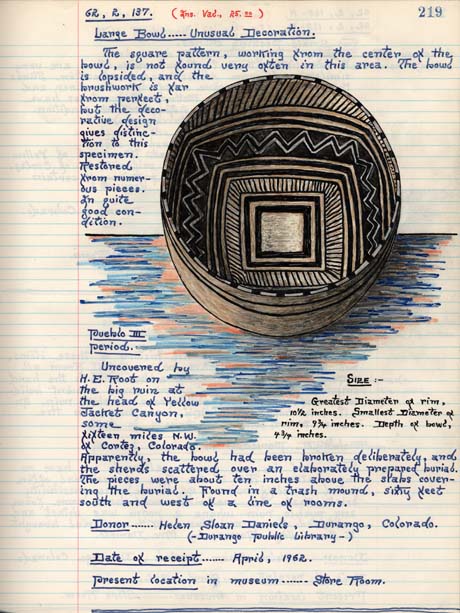 62, 2, 137. (Ins. Val., 25.00) 219
Large Bowl..... Unusual Decoration.
The square pattern, working from the center of the
bowl, is not found very often in this area. The bowl
is lopsided, and the
brushwork is far
from perfect,
but the deco-
rative design
gives distinc-
tion to this
specimen.
Restored
from numer-
ous pieces.
In quite
good con-
dition.
Pueblo III
period.
Uncovered by
H.E. Root on
the big ruin at
the head of Yellow
Jacket Canyon,
some
sixteen miles N.W.
of Cortez, Colorado.
Size :-
Greatest Diameter of rim,
10½ inches. Smallest Diameter of
rim, 9¾ inches. Depth of bowl,
4¾ inches.
Apparently, the bowl had been broken deliberately, and
the sherds scattered over an elaborately prepared burial.
The pieces were about ten inches above the slabs cover-
ing the burial. Found in a trash mound, sixty feet
south and west of a line of rooms.
Donor ....... Helen Sloan Daniels, Durango, Colorado.
(-Durango Public Library-)
Date of receipt ....... April, 1962.
Present location in museum ....... Store Room.